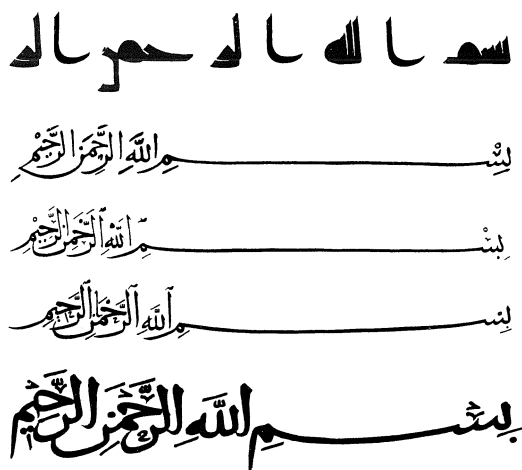 بسم الله الرحمن الر
بِسْمِ اللَّهِ الرَّحْمَنِ الرَّحِيمِ
بِسْمِ اللَّهِ الرَّحْمَنِ الرَّحِيمِ
بِسْمِ اللَّهِ الرَّحْمَنِ الرَّحِيمِ
بِسْمِ اللَّهِ الرَّحْمَنِ الرَّحِيمِ